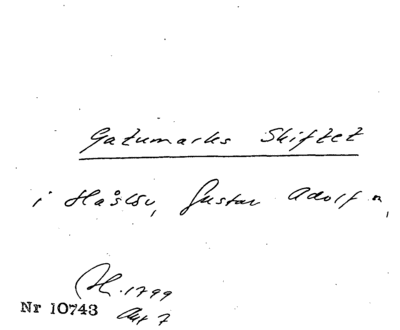 Gatumarks Skiftet
i Håslöv, Gustav Adolf n,
H. 1799
Nr 10743
Akt 7